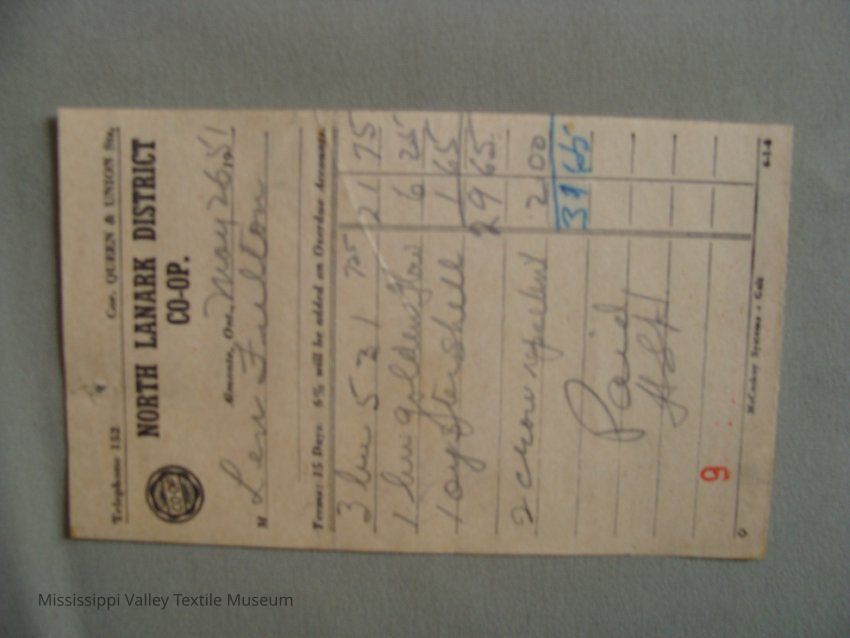 Telephone 152 Cor. QUEEN & UNION Sts.
NORTH LANARK DISTRICT
CO-OP.
CO-OP
Almonte, Ont., May 26 1951
M Len Fulton
Terms: 15 Days. 5% will be added on Overdue Accounts.
3 bu 521 725 21 75
1 bu golden glow 6 25
1 oyster shell 1 65
29 65
2 crow repellent 2 00
31 65
Paid
9
6-1-8
Mississippi Valley Textile Museum